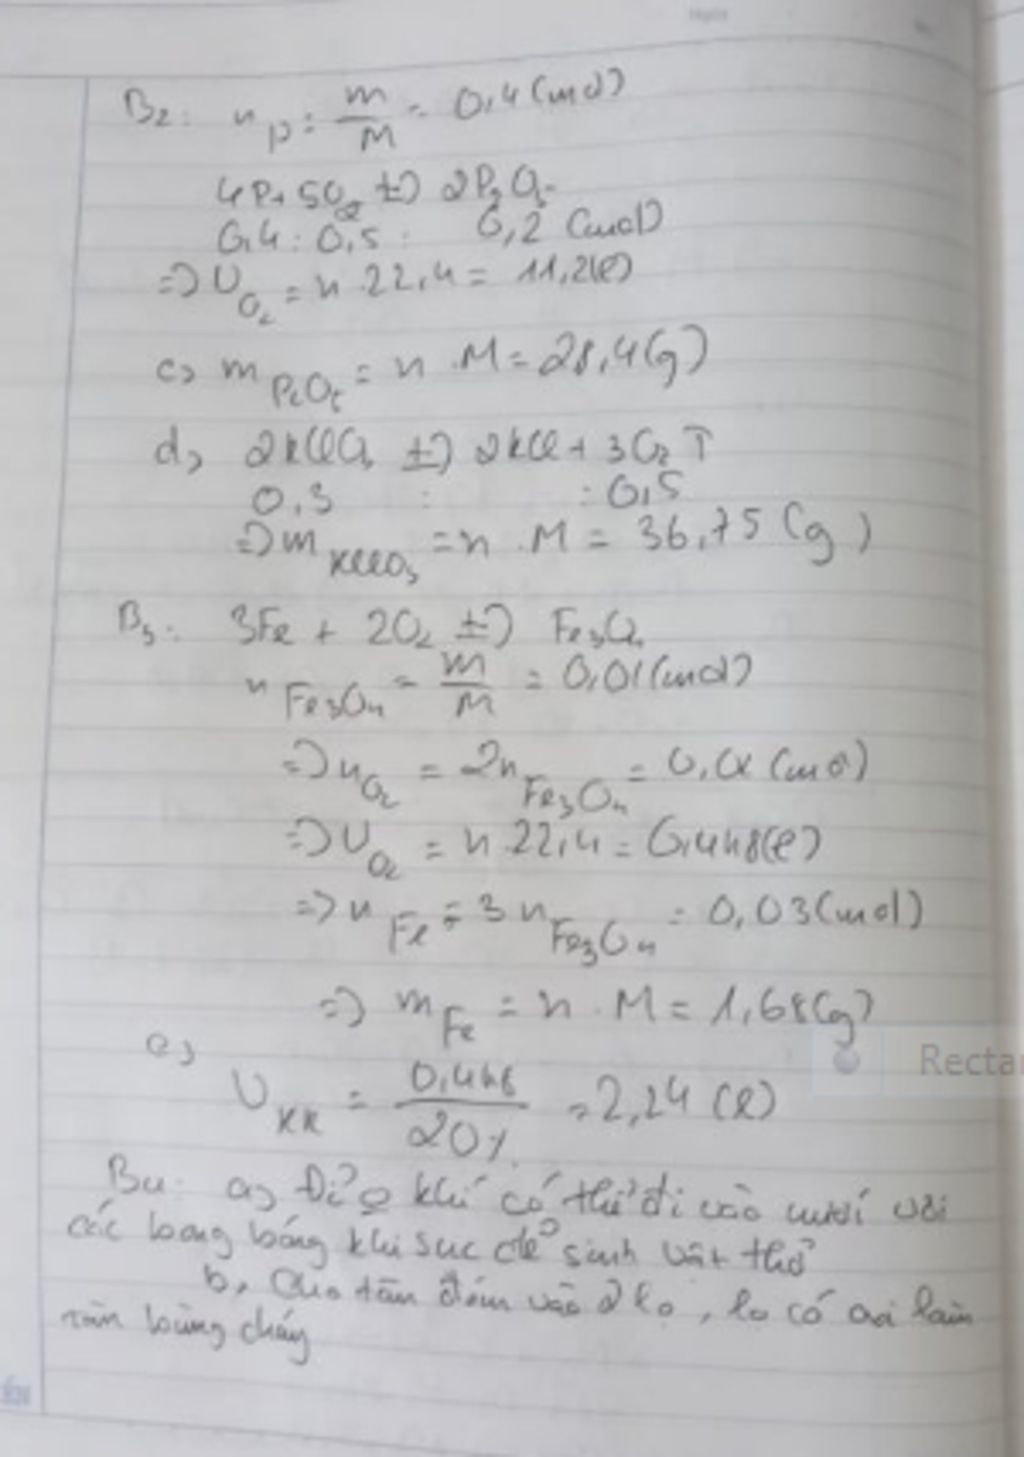 B2: n P = m/M = 0,4 (mol)
4P + 5O2 t→ 2P2O5
0,4 : 0,5 : 0,2 (mol)
=> V O2 = n.22,4 = 11,2(l)
c, m P2O5 = n.M = 28,4(g)
d, 2KClO3 t→ 2KCl + 3O2 ↑
0,3 : : 0,5
=> m KClO3 = n.M = 36,75 (g)
B3: 3Fe + 2O2 t→ Fe3O4
n Fe3O4 = m/M = 0,01(mol)
=> n O2 = 2n Fe3O4 = 0,02 (mol)
=> V O2 = n.22,4 = 0,448(l)
=> n Fe = 3n Fe3O4 = 0,03(mol)
=> m Fe = n.M = 1,68(g)
Recta
V KK = 0,448/20% = 2,24 (l)
B4: a, Để khí có thể đi vào nước với
các bong bóng khi sục để sinh vật thở
b, Cho tàn đóm vào 2 lọ, lọ có oxi làm
tàn bùng cháy